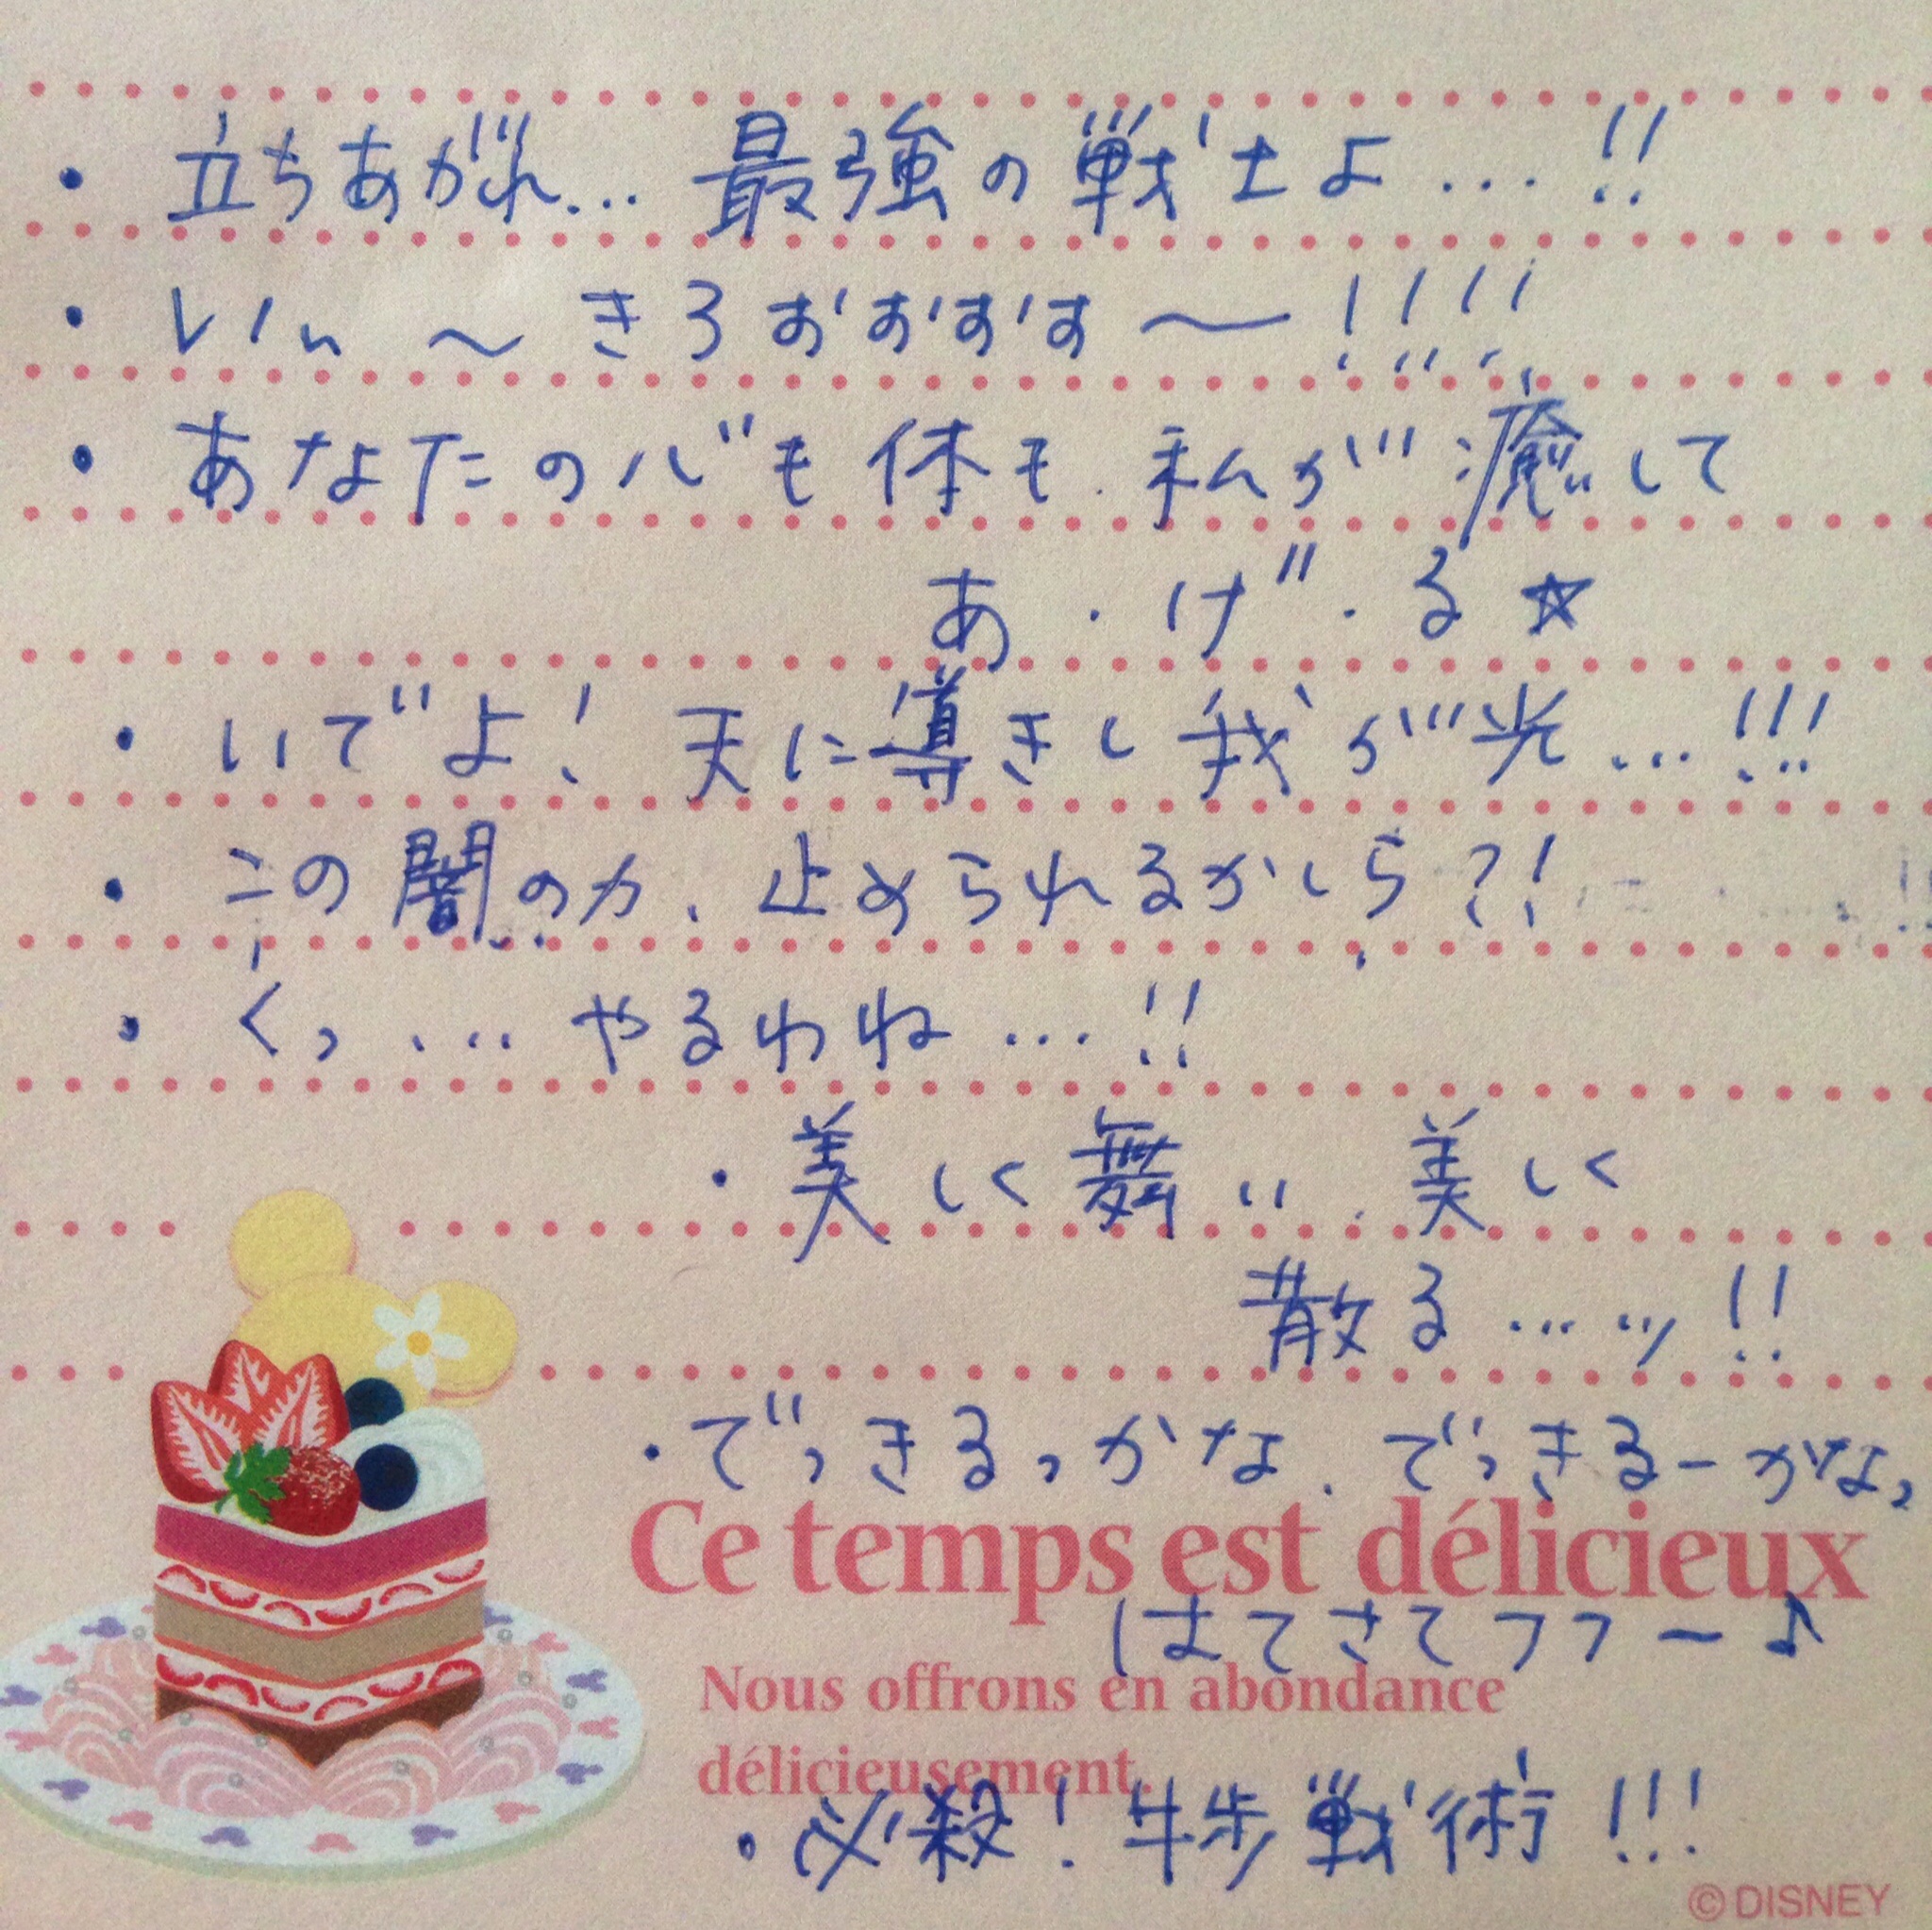 ・立ちあがれ…最強の戦士よ…!!
・いぃ～きろおおおお～!!!!
・あなたの心も体も、私が癒して
あ・げ・る☆
・いでよ!天に導きし我が光…!!!
・この闇の力、止められるかしら?!
・くっ…やるわね…!!
・美しく舞い、美しく
散る…ッ!!
・でっきるっかな、でっきるーかな。
Ce temps est délicieux
はてさてフフ～♪
Nous offrons en abondance
délicieusement.
・必殺!牛歩戦術!!!
©DISNEY